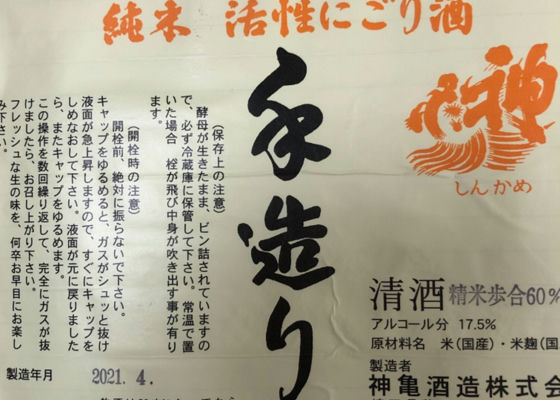 純米 活性にごり酒
手造り
しんかめ
(保存上の注意)
酵母が生きたまま、ビン詰されていますの
で、必ず冷蔵庫に保管して下さい。常温で置
いた場合 栓が飛び中身が吹き出す事が有り
ます。
(開栓時の注意)
開栓前、絶対に振らないで下さい。
キャップをゆるめると、ガスがシュッと抜け
液面が急上昇しますので、すぐにキャップを
しめなおして下さい。液面が元に戻りました
ら、またキャップをゆるめます。
この操作を数回繰り返して、完全にガスが抜
けましたら、お召し上がり下さい。
フレッシュな生の味を、何卒お早目にお楽し
み下さい。
製造年月 2021. 4.
清酒 精米歩合60%
アルコール分 17.5%
原材料名 米(国産)・米麹(国
製造者
神亀酒造株式会